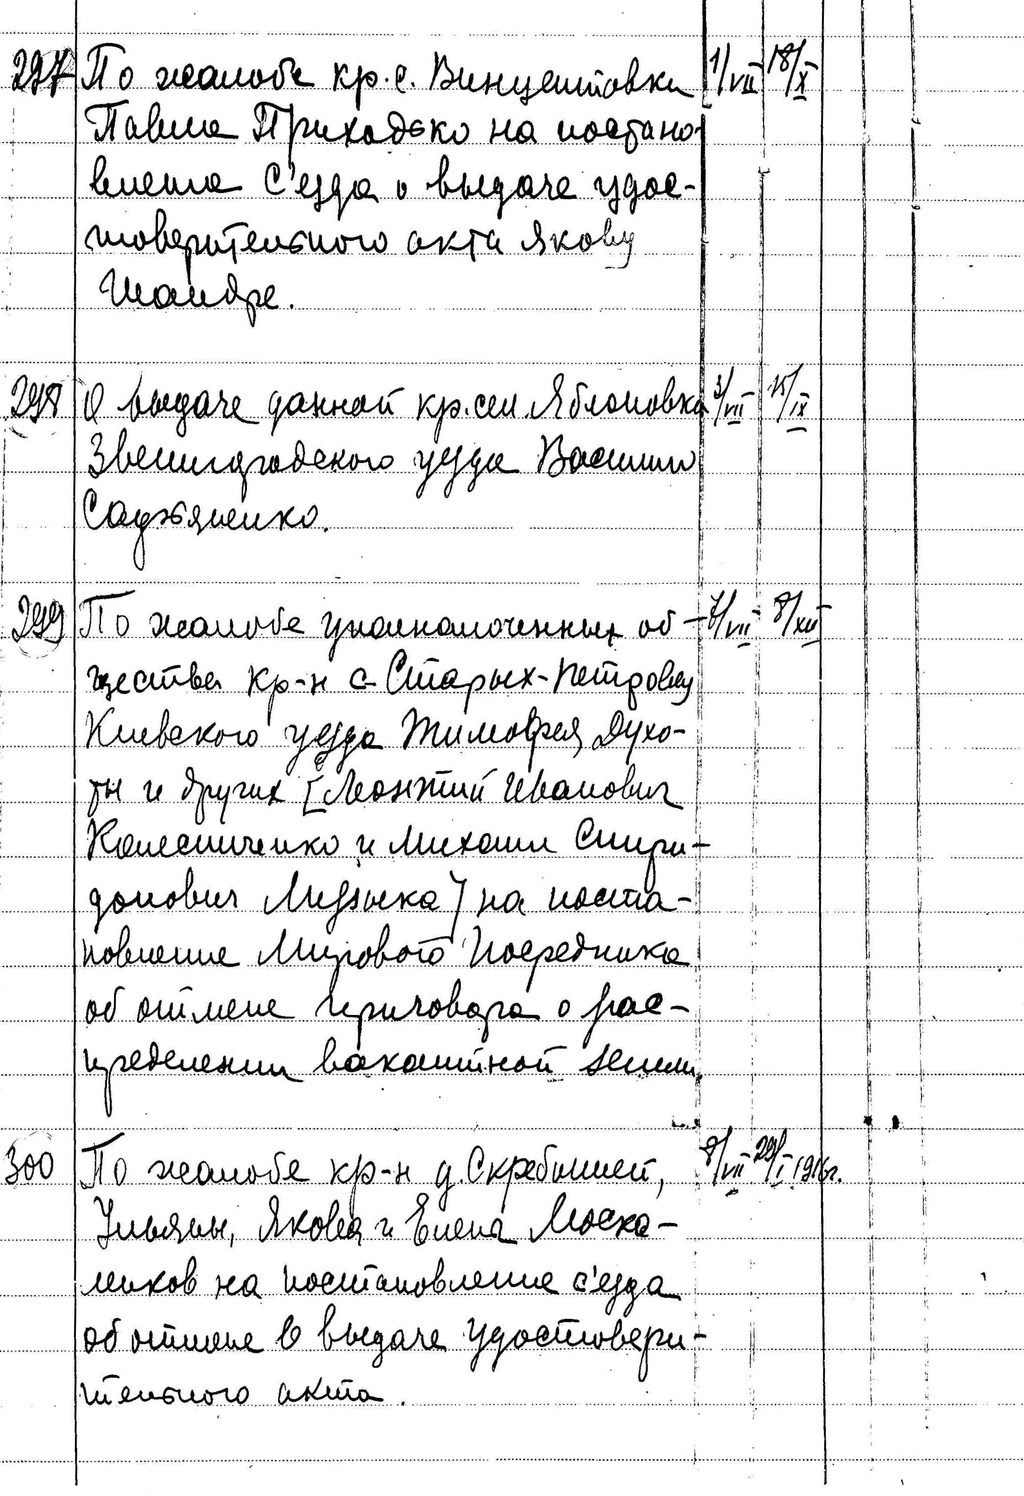 297 По жалобе кр. с. Винцентовки 1/VII 18/X
Павла Приходько на постано-
вление с'езда о выдаче удос-
товерительного акта Якову
Шандре.
298 О выдаче данной кр. сел. Яблоновка 3/VII 15/IX
Звенигородского уезда Василию
299 По жалобе уполномоченных об- 7/VII 8/XII
щества кр-н с. Старых-Петровц
Киевского уезда Тимофея Духо-
ты и других [Леонтий Иванович
Колесниченко и Михаил Спири-
донович Музыка] на поста-
новление Мирового Посредника
об отмене приговора о рас-
пределении вакантной земли.
300 По жалобе кр-н д. Скребышей, 8/VII 29/I 1916г.
Ульяны, Якова и Елена Моска-
ленков на постановление с'езда
об отмене в выдаче удостовери-
тельного акта.